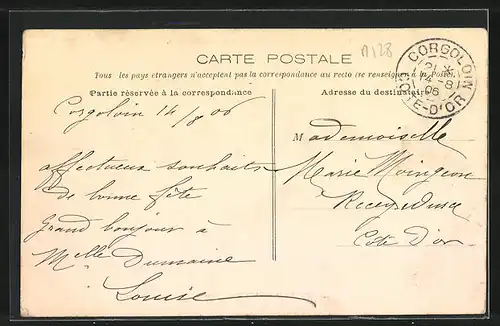 A128
CARTE POSTALE
Tous les pays étrangers n'acceptent pas la correspondance au recto (se renseigner à la Poste)
CORGOLOIN
21 *
14 -8
06
COTE-D'OR
Partie réservée à la correspondance
Adresse du destinataire
Corgoloin 14/8 06
affectueux souhaits
de bonne fête
Grand bonjour à
Melle Dumaine
Louise
Mademoiselle
Marie Moingeon
Côte d'or